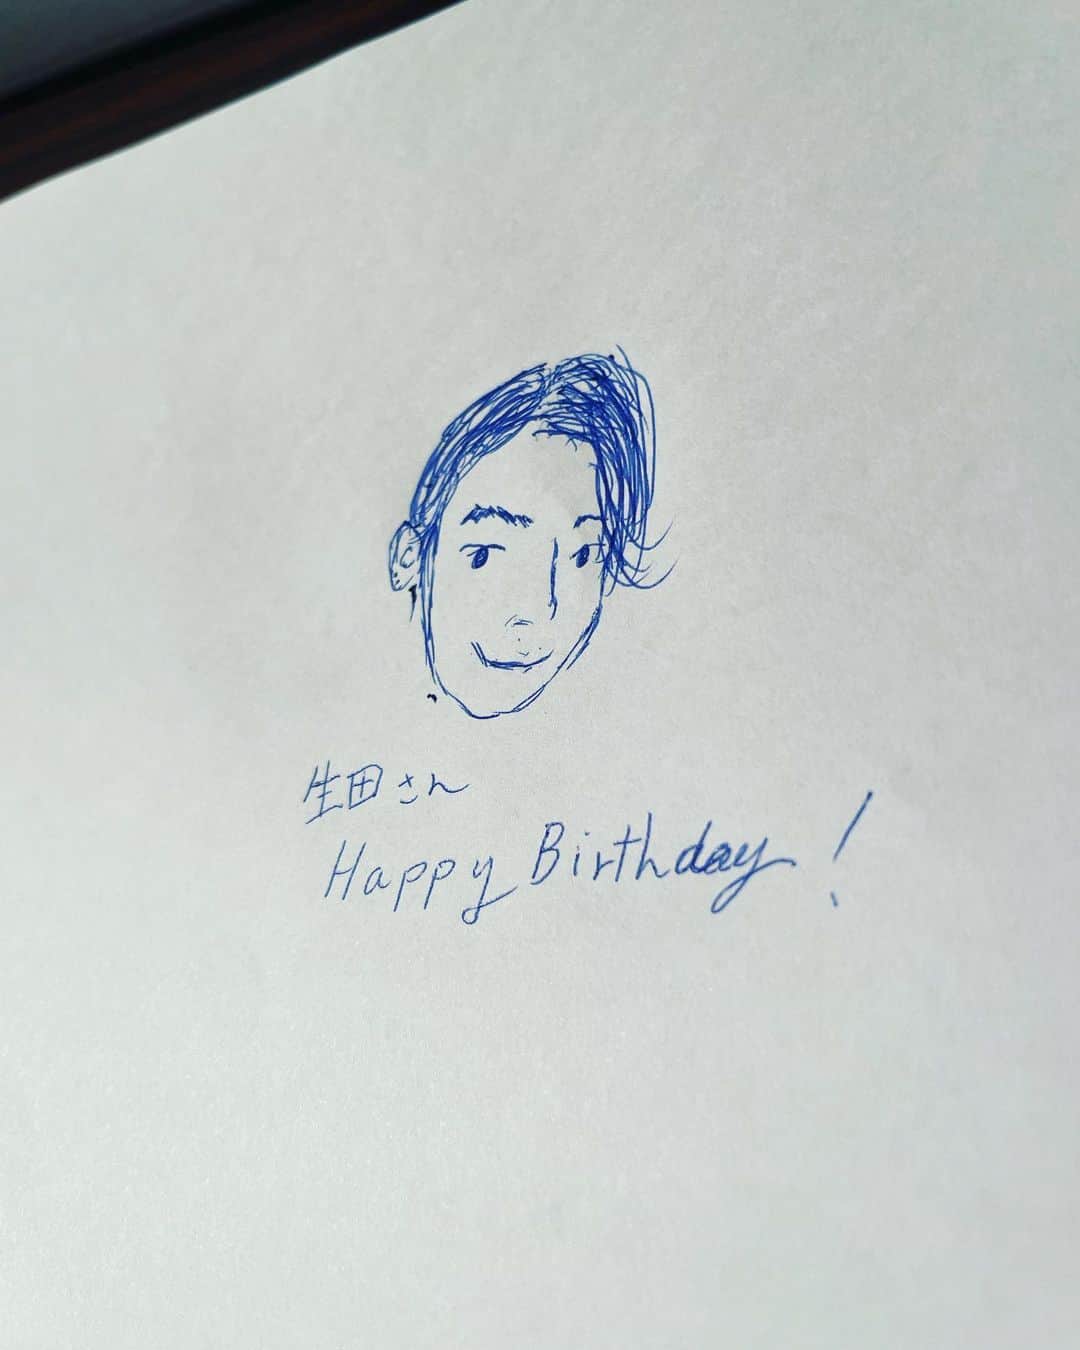 生田さん
Happy Birthday!